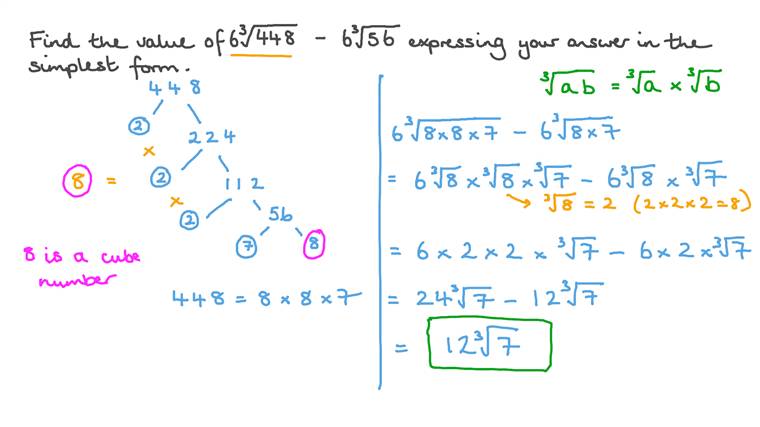 Find the value of 6∛448 − 6∛56 expressing your answer in the
simplest form.
448
2
224
×
8 = 2
112
×
2
56
7
8
8 is a cube
number
448 = 8 × 8 × 7
∛ab = ∛a × ∛b
6∛8×8×7 − 6∛8×7
= 6∛8 × ∛8 × ∛7 − 6∛8 × ∛7
→ ∛8 = 2 (2×2×2=8)
= 6 × 2 × 2 × ∛7 − 6 × 2 × ∛7
= 24∛7 − 12∛7
= 12∛7